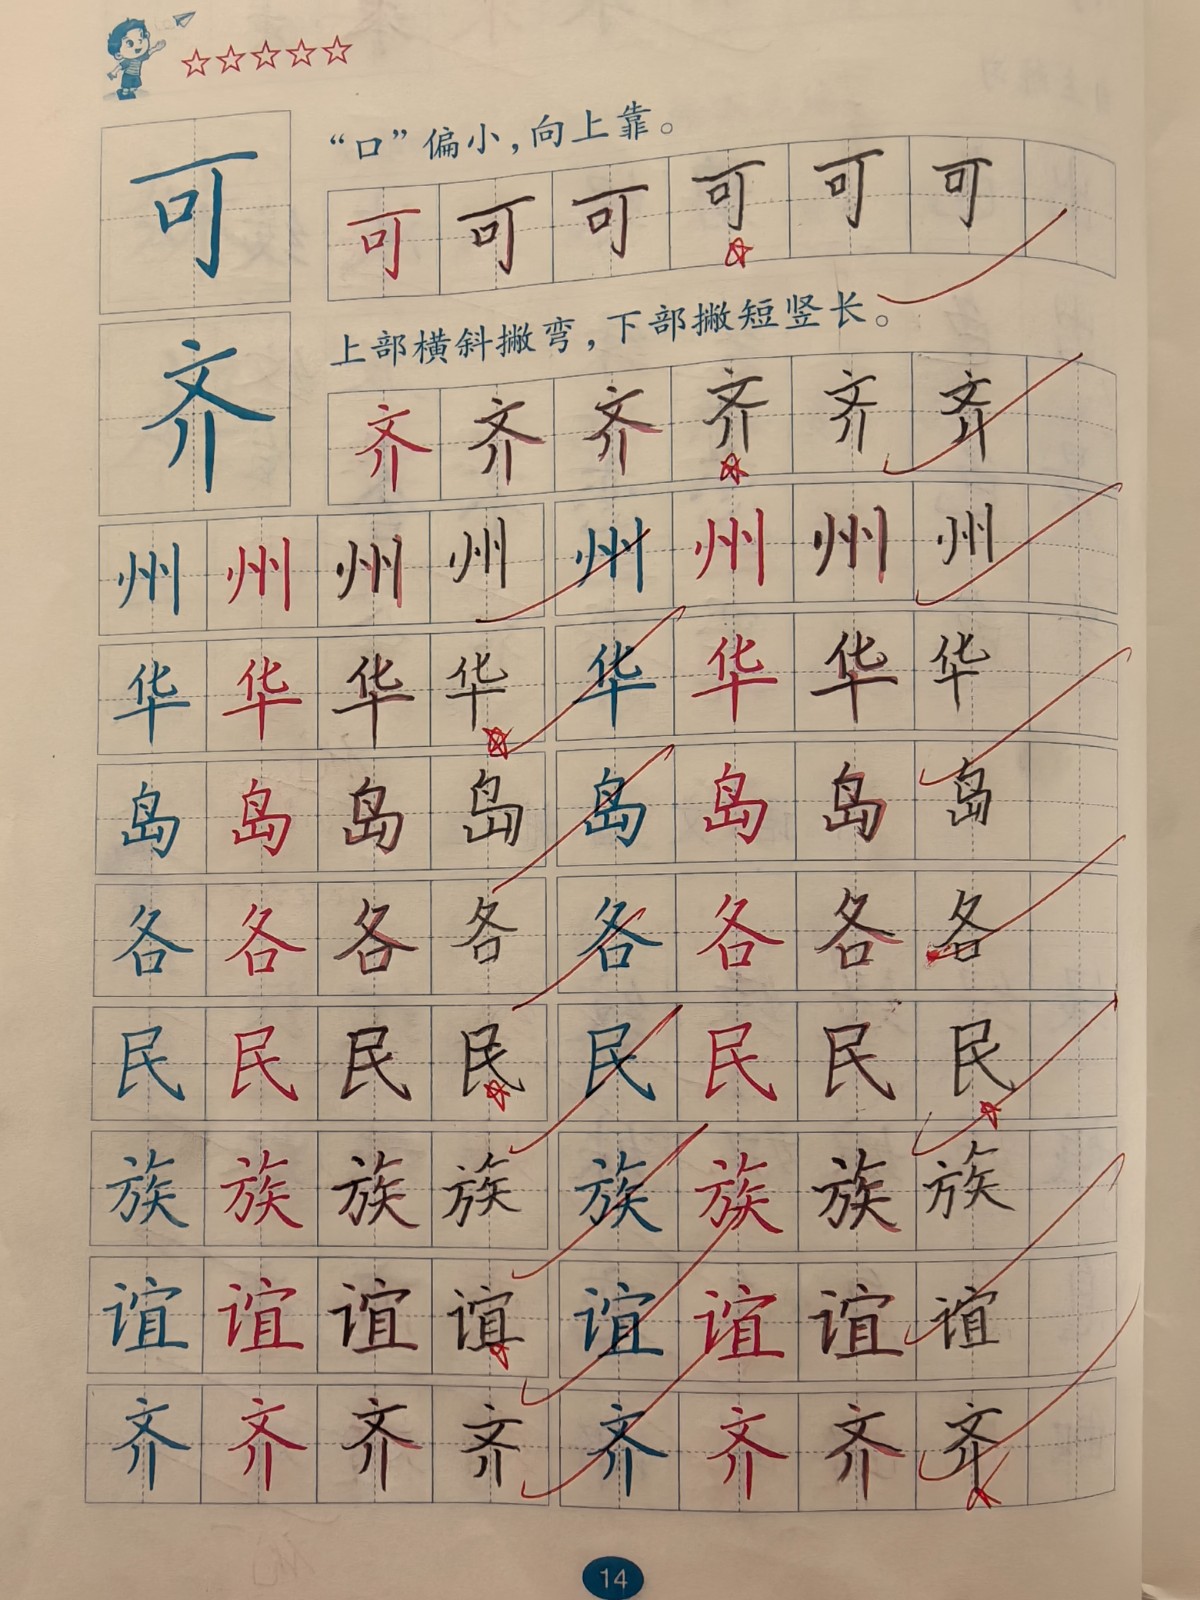 可 “口”偏小，向上靠。
可 可 可 可 可 可
齐 上部横斜撇弯，下部撇短竖长。
齐 齐 齐 齐 齐 齐
州 州 州 州 州 州 州 州
华 华 华 华 华 华 华 华
岛 岛 岛 岛 岛 岛 岛 岛
各 各 各 各 各 各 各 各
民 民 民 民 民 民 民 民
族 族 族 族 族 族 族 族
谊 谊 谊 谊 谊 谊 谊 谊
齐 齐 齐 齐 齐 齐 齐 齐
14